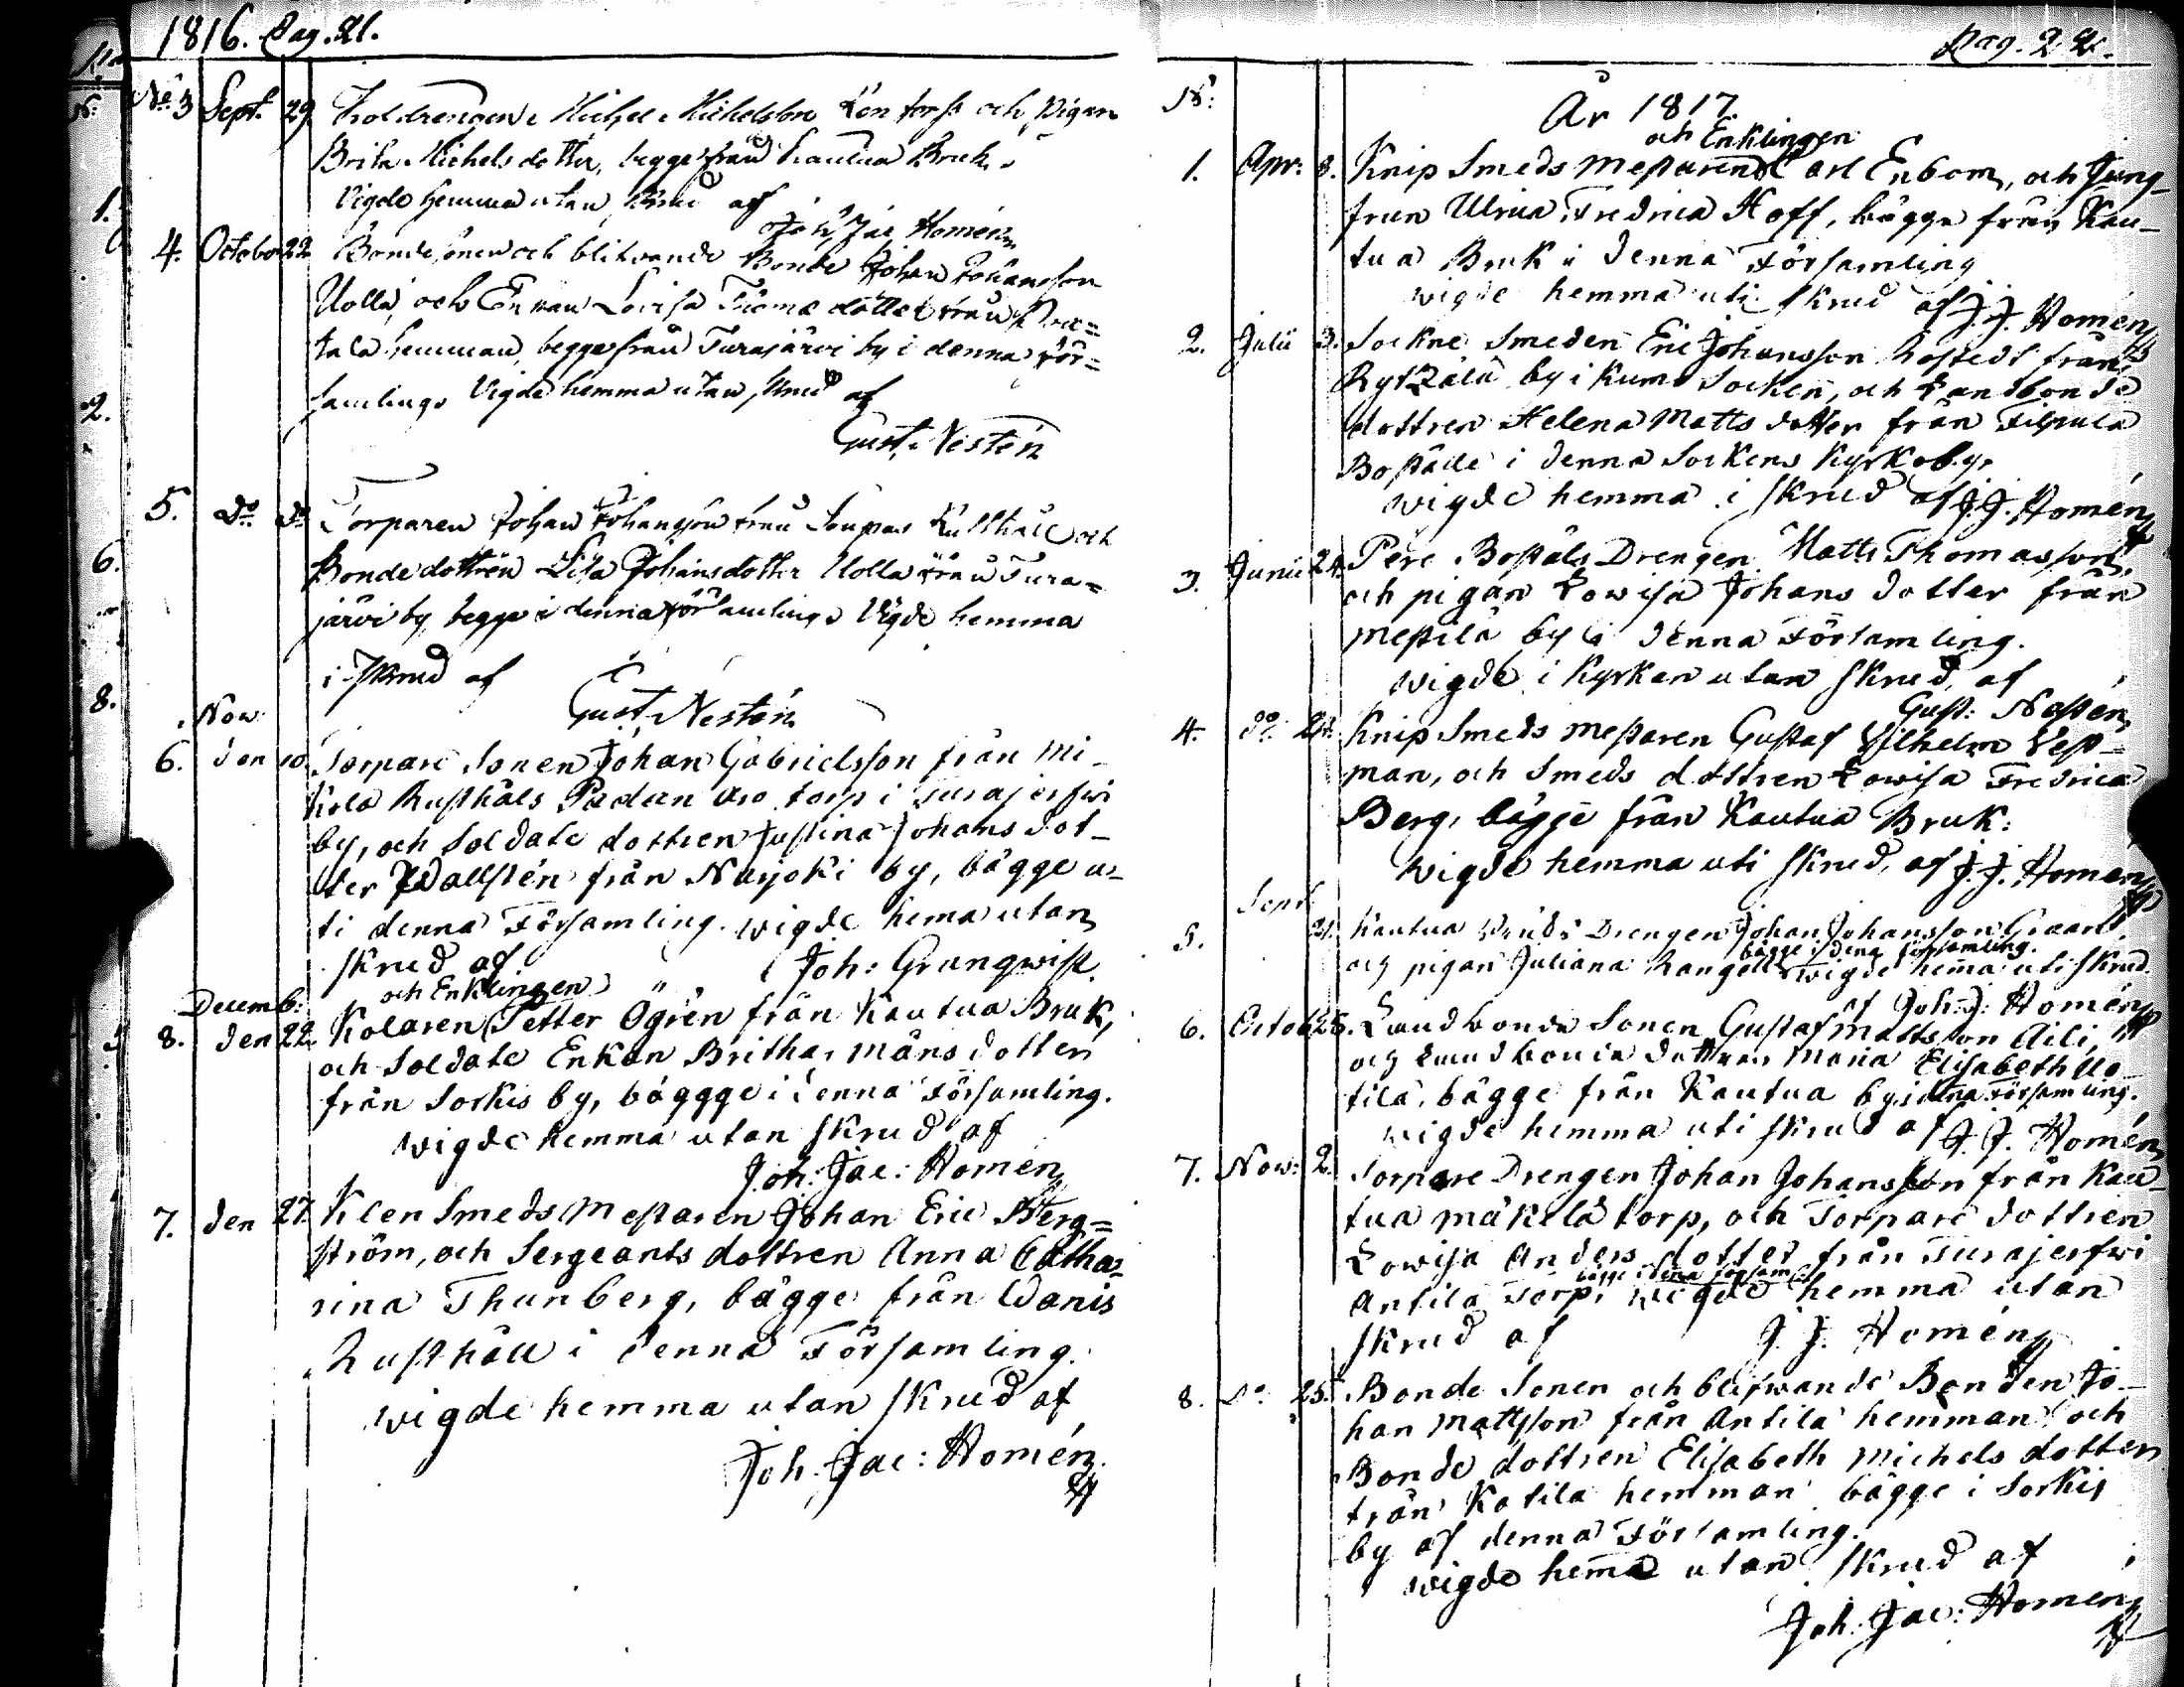 1816. Pag. 21.
No 3 Sept. 29 Koldrengen Michel Michelsson och Pigan
Brita Michelsdotter, begge från Kautua Bruk.
Vigde hemma utan skrud af
Joh. Jac Homén
4. October 22 Bonde sonen och blifwande Bonde Johan Johansson
Uolla, och Enkan Lovisa Thomædotter från
tala hemman, begge från Turajärvi by i denna För=
samling. Vigde hemma utan skrud af
Gust. Nestén
5. do do Torparen Johan Johansson från Rusthåll och
Bondedottren Lisa Johansdotter Uolla från Tura=
järvi by, begge i denna församling. Vigde hemma
i skrud af
Gust. Nestén
Now:
6. den 10. Torpare Sonen Johan Gabrielsson från Mi-
kola Rusthåls torp i Turajerfwi
by, och Soldate dottren Justina Johans dot-
ter Wallstén från Naijoki by, bägge u-
ti denna Församling. wigde hema utan
skrud af Joh: Grunqwist.
och Enklingen
Decemb:
8. den 22. Kolaren Petter Ögrén från Kautua Bruk,
och Soldate Enkan Britha Måns dotter
från Sorkis by, båggge i denna Församling.
wigde hemma utan skrud af
Joh: Jac: Homén
7. den 27. Klensmeds Mestaren Johan Eric Berg=
ström, och Sergeants dottren Anna Catha=
rina Thunberg, bägge från Wanis
Rusthåll i denna Församling.
wigde hemma utan skrud af
Joh. Jac: Homén.
Pag. 22.
No:
År 1817
och Enklingen
1. Apr: 8. Knip Smeds mestaren Carl Enbom, och Jung-
frun Ulrica Fredrica Hoff, bägge från Kau-
tua Bruk i denna Församling
wigde hemma uti skrud af J. J. Homén
2. Julii 3. Sockne Smeden Eric Johansson Rostedt från
by i Kumo Socken, och Landbonde
dottren Helena Matts dotter från Filpula
Boställe i denna Sockens Kyrkoby.
wigde hemma i skrud af J. J. Homén
3. Junii 24. Pere Boställs Drengen Matts Thomasson,
och pigan Lowisa Johans dotter från
Mestilä by i denna Församling.
wigde i Kyrkan utan skrud, af
Gust: Nestén
4. do. 24. Knip Smeds mestaren Gustaf Wilhelm West-
man, och Smeds dottren Lowisa Fredrica
Berg, bägge från Kautua Bruk:
wigde hemma uti skrud, af J. J. Homén
Sept.
5. 21. Kautua Bruks Drengen Johan Johansson Graant,
bägge i dena församling.
och pigan Juliana Rangell wigde hema uti skrud.
af Joh: J: Homén
6. Octob. 26. Landbonde Sonen Gustaf Mattsson Aili,
och Landbonde dottren Maria Elisabeth Uo-
tila, bägge från Kautua by i dena Församling.
wigde hemma uti skrud af J. J. Homén
7. Now: 2. Torpare Drengen Johan Johansson från Kau-
tua Mäkilä torp, och Torpare dottren
Lowisa Anders dotter från Turajerfwi
bägge i dena församl.
Antila Torp. wigde hemma utan
skrud af J. J. Homén
8. Do. 25. Bonde Sonen och blifwande Bonden Jo-
han Mattsson från Antila hemman, och
Bonde dottren Elisabeth Michels dotter
från Katila hemman bägge i Sorkis
by af denna Församling.
wigde hema utan skrud af
Joh: Jac: Homén